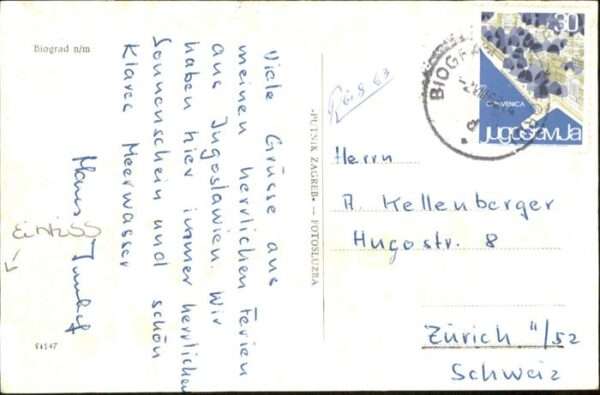 Biograd n/m
Viele Grüsse aus
meinen herrlichen Ferien
aus Jugoslawien. Wir
haben hier immer herrlichen
Sonnenschein und schön
Klares Meerwasser
Hans
54147
»PUTNIK ZAGREB« — FOTOSLUŽBA
6.8.63
30
CRIKVENICA
jugoslavija
BIOGRAD
Herrn
A. Kellenberger
Hugostr. 8
Zürich 11/52
Schweiz